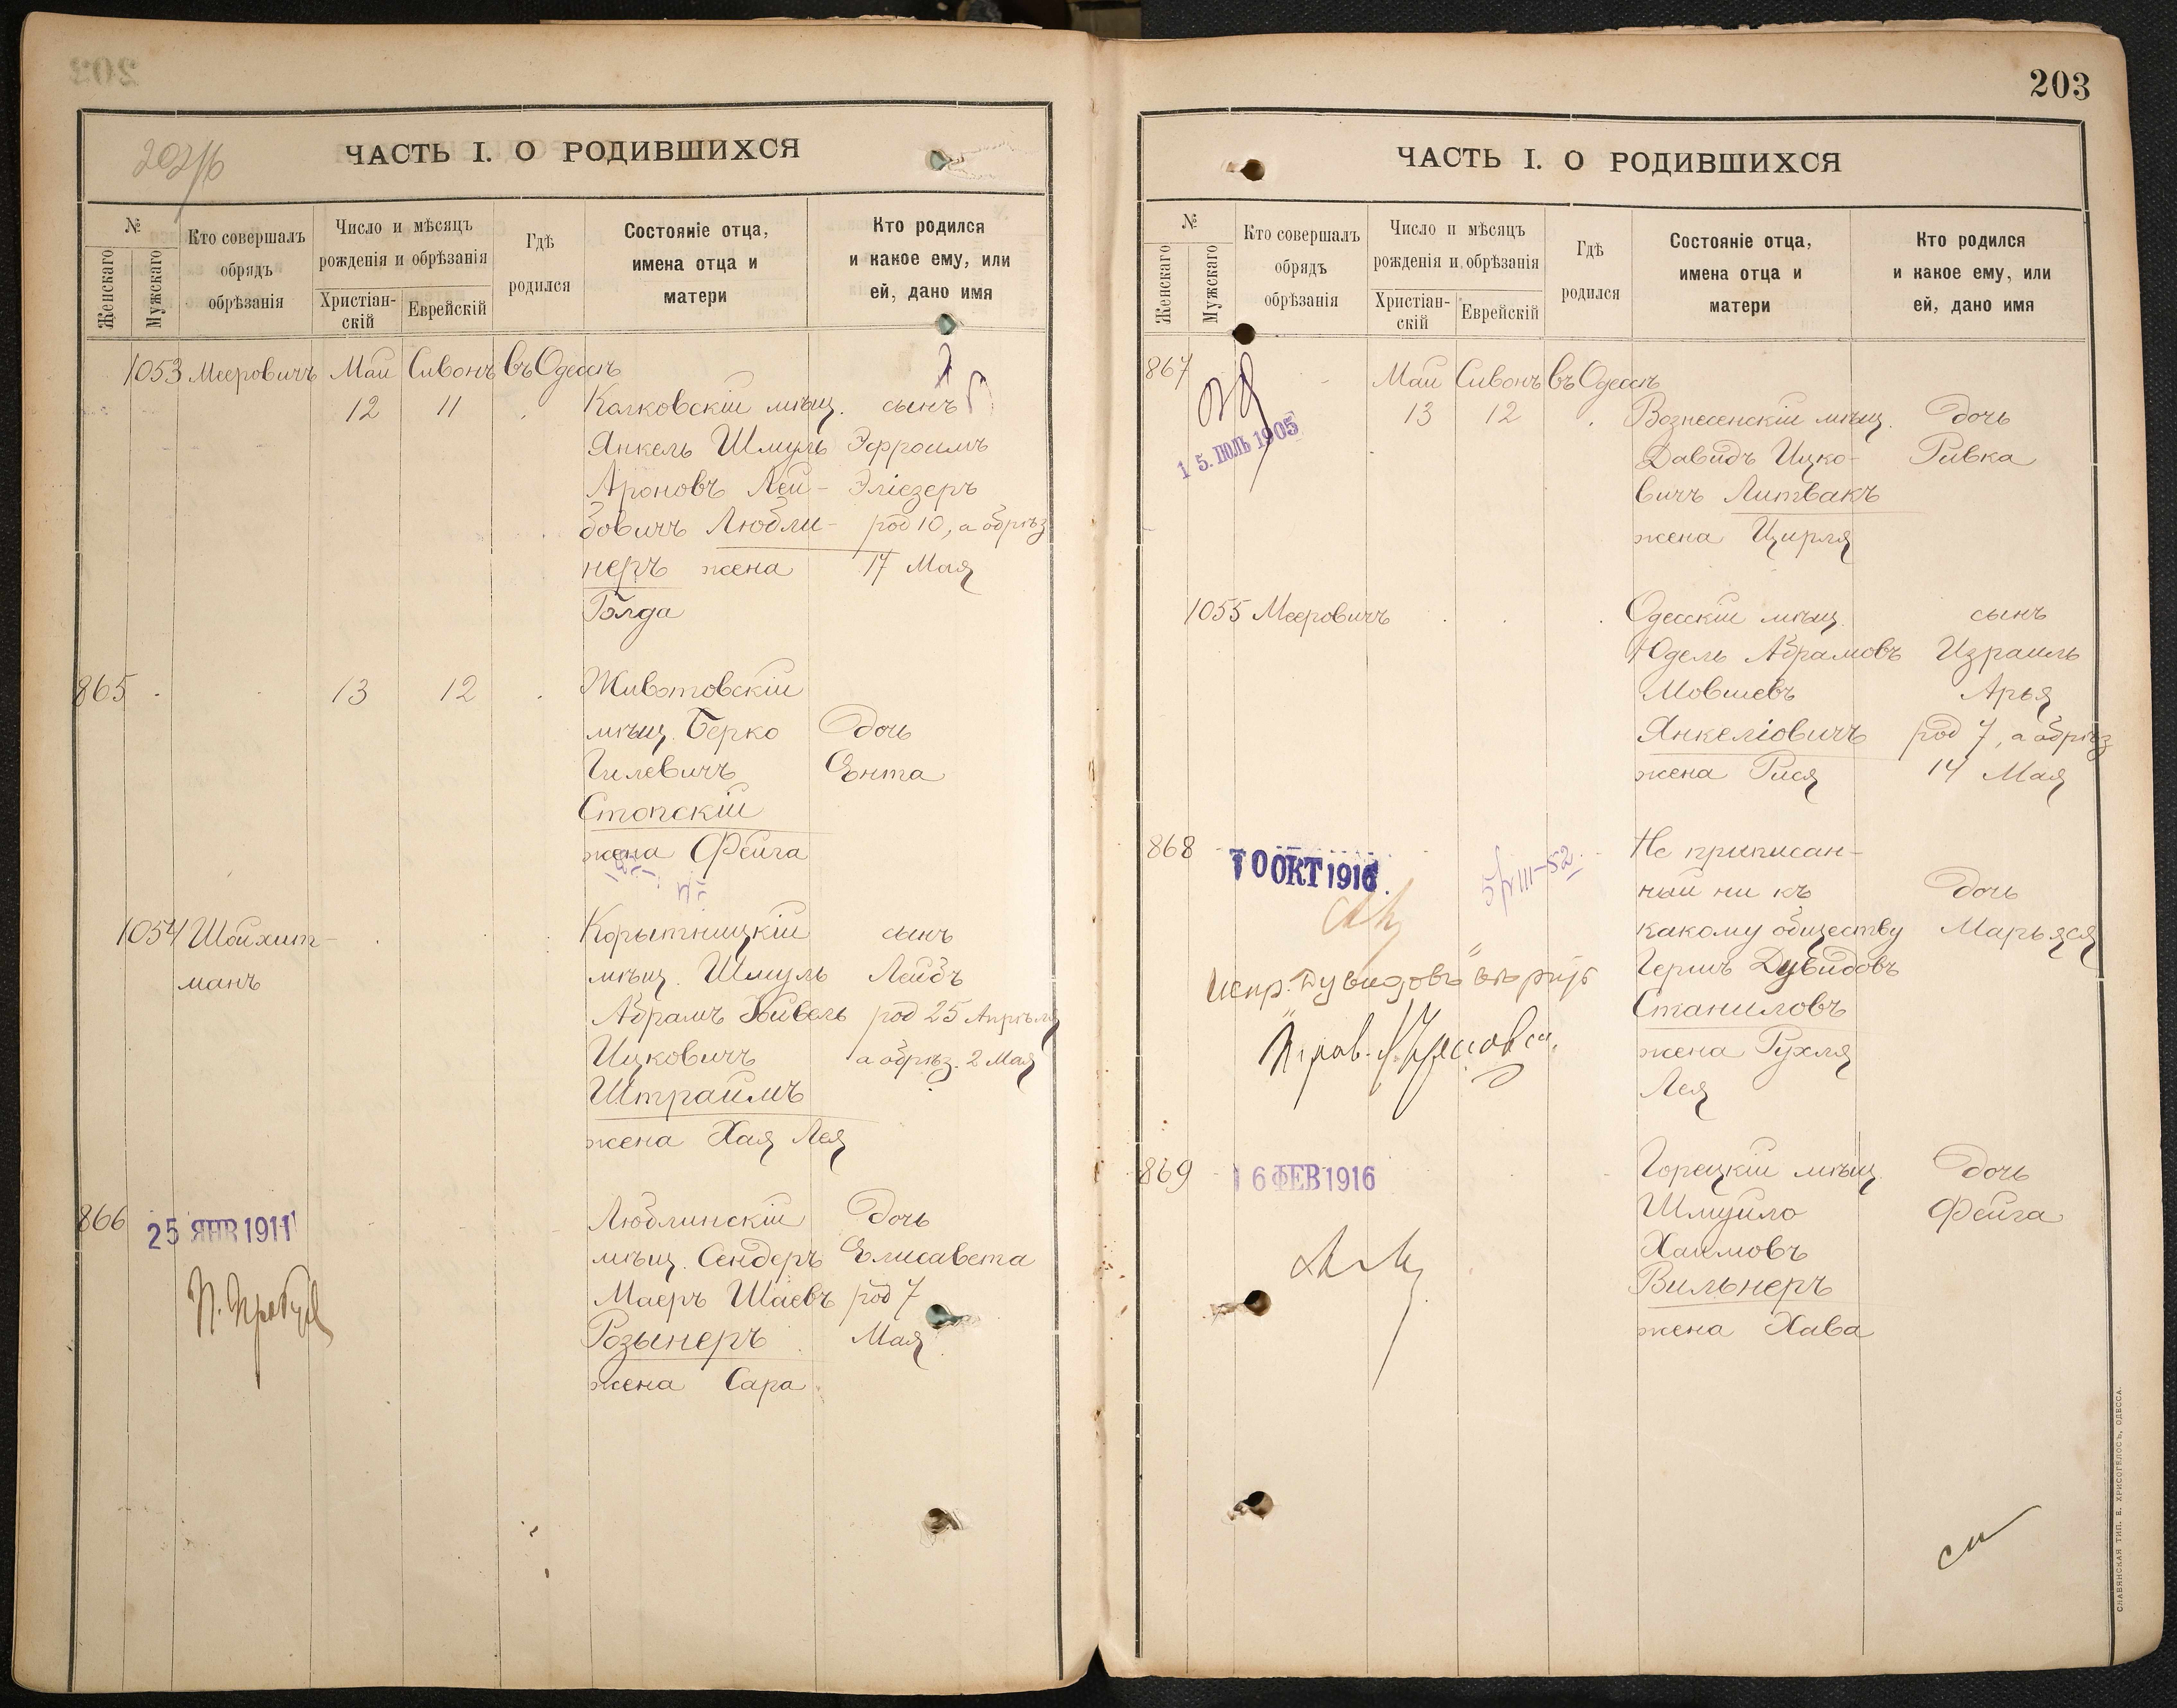 203
202/б
ЧАСТЬ I. О РОДИВШИХСЯ
№
Женскаго
Мужскаго
Кто совершалъ
обрядъ
обрѣзанія
Число и мѣсяцъ
рожденія и обрѣзанія
Христіан-
скій
Еврейскій
Гдѣ
родился
Состояніе отца,
имена отца и
матери
Кто родился
и какое ему, или
ей, дано имя
1053 Мееровичъ Май Сивонъ въ Одессѣ
12 11 Колковскій мѣщ. сынъ
Янкель Шмуль Эфроимъ
Ароновъ Лей- Эліезеръ
бовичъ Любли- род 10, а обрѣз
неръ жена 17 Мая
Голда
865 13 12 Животовскій
мѣщ. Берко Дочь
Гилевичъ Ента
Стопскій
жена Фейга
1054 Шойхит- Корытницкій сынъ
манъ мѣщ. Шмуль Лейбъ
Абрамъ Зивель род 25 Апрѣля
Ицковичъ а обрѣз. 2 Мая
Штраимъ
жена Хая Лея
866 25 ЯНВ 1911 Люблинскій Дочь
мѣщ. Сендеръ Елисавета
Маеръ Шаевъ род 7
Розынеръ Мая
жена Сара
203
ЧАСТЬ I. О РОДИВШИХСЯ
№
Женскаго
Мужскаго
Кто совершалъ
обрядъ
обрѣзанія
Число и мѣсяцъ
рожденія и обрѣзанія
Христіан-
скій
Еврейскій
Гдѣ
родился
Состояніе отца,
имена отца и
матери
Кто родился
и какое ему, или
ей, дано имя
867 Май Сивонъ въ Одессѣ
13 12 Вознесенскій мѣщ. Дочь
15. ІЮЛЬ 1905
Давидъ Ицко- Ривка
вичъ Литвакъ
жена Цирля
1055 Мееровичъ Одесскій мѣщ. сынъ
Юдель Абрамовъ Израиль
Мовшевъ Арья
Янкеліовичъ род 7, а обрѣз
жена Рися 14 Мая
868 Не приписан-
10 ОКТ 1916 5/III-52
ный ни къ Дочь
какому обществу Марьяся
Гершъ Дувидовъ
Испр. "Дувидовъ" вѣрно
Станиловъ
жена Рухля
Лея
869 16 ФЕВ 1916 Горецкій мѣщ. Дочь
Шмуило Фейга
Хаимовъ
Вильнеръ
жена Хава
СЛАВЯНСКАЯ ТИП. Е. ХРИСОГЕЛОСЪ, ОДЕССА.